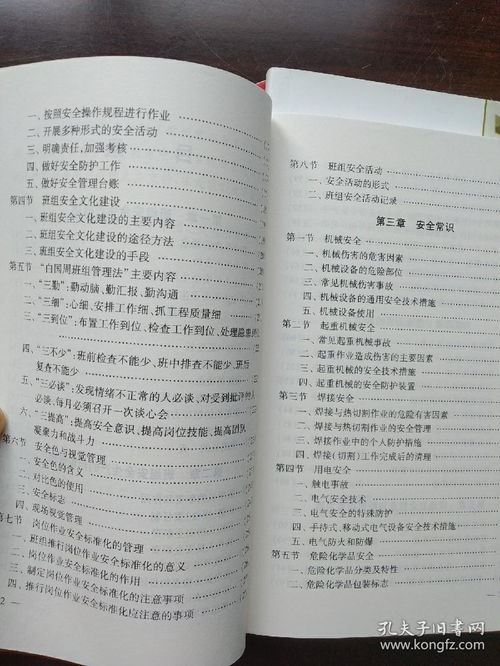 一、按照安全操作规程进行作业
二、开展多种形式的安全活动
三、明确责任,加强考核
四、做好安全防护工作
五、做好安全管理台账
第四节 班组安全文化建设
一、班组安全文化建设的主要内容
二、班组安全文化建设的途径方法
三、班组安全文化建设的手段
第五节 “白国周班组管理法”主要内容
一、“三勤”:勤动脑、勤汇报、勤沟通
二、“三细”:心细、安排工作细、抓工程质量细
三、“三到位”:布置工作到位、检查工作到位、处理隐患到
四、“三不少”:班前检查不能少、班中排查不能少、班后
复查不能少
五、“三必谈”:发现情绪不正常的人必谈、对受到批评的人
必谈、每月必须召开一次谈心会
六、“三提高”:提高安全意识、提高岗位技能、提高团队
凝聚力和战斗力
第六节 安全色与视觉管理
一、安全色的含义
二、对比色的使用
三、安全标志
四、现场视觉管理
第七节 岗位作业安全标准化的管理
一、班组推行岗位作业安全标准化的意义
二、岗位作业安全标准化的作用
三、制定岗位作业安全标准化的注意事项
四、推行岗位作业安全标准化应注意的事项
2 —
第八节 班组安全活动
一、安全活动的形式
二、班组安全活动记录
第三章 安全常识
第一节 机械安全
一、机械伤害的危害因素
二、机械设备的危险部位
三、常见机械伤害事故
四、机械设备的通用安全技术措施
五、机械设备使用
第二节 起重机械安全
一、常见起重机械事故
二、起重作业造成伤害的主要因素
三、起重机械的安全技术措施
四、起重机械的安全防护装置
第三节 焊接安全
一、焊接与热切割作业的危险有害因素
二、焊接与热切割作业的安全管理
三、焊接作业中的个人防护措施
四、焊接(切割)工作完成后的清理
第四节 用电安全
一、触电事故
二、电气安全技术
三、电气安全的特殊防护
四、手持式、移动式电气设备安全技术措施
五、电气防火和防爆
第五节 危险化学品安全
一、危险化学品分类及特性
二、危险化学品包装标志
孔夫子旧书网
www.kongfz.com